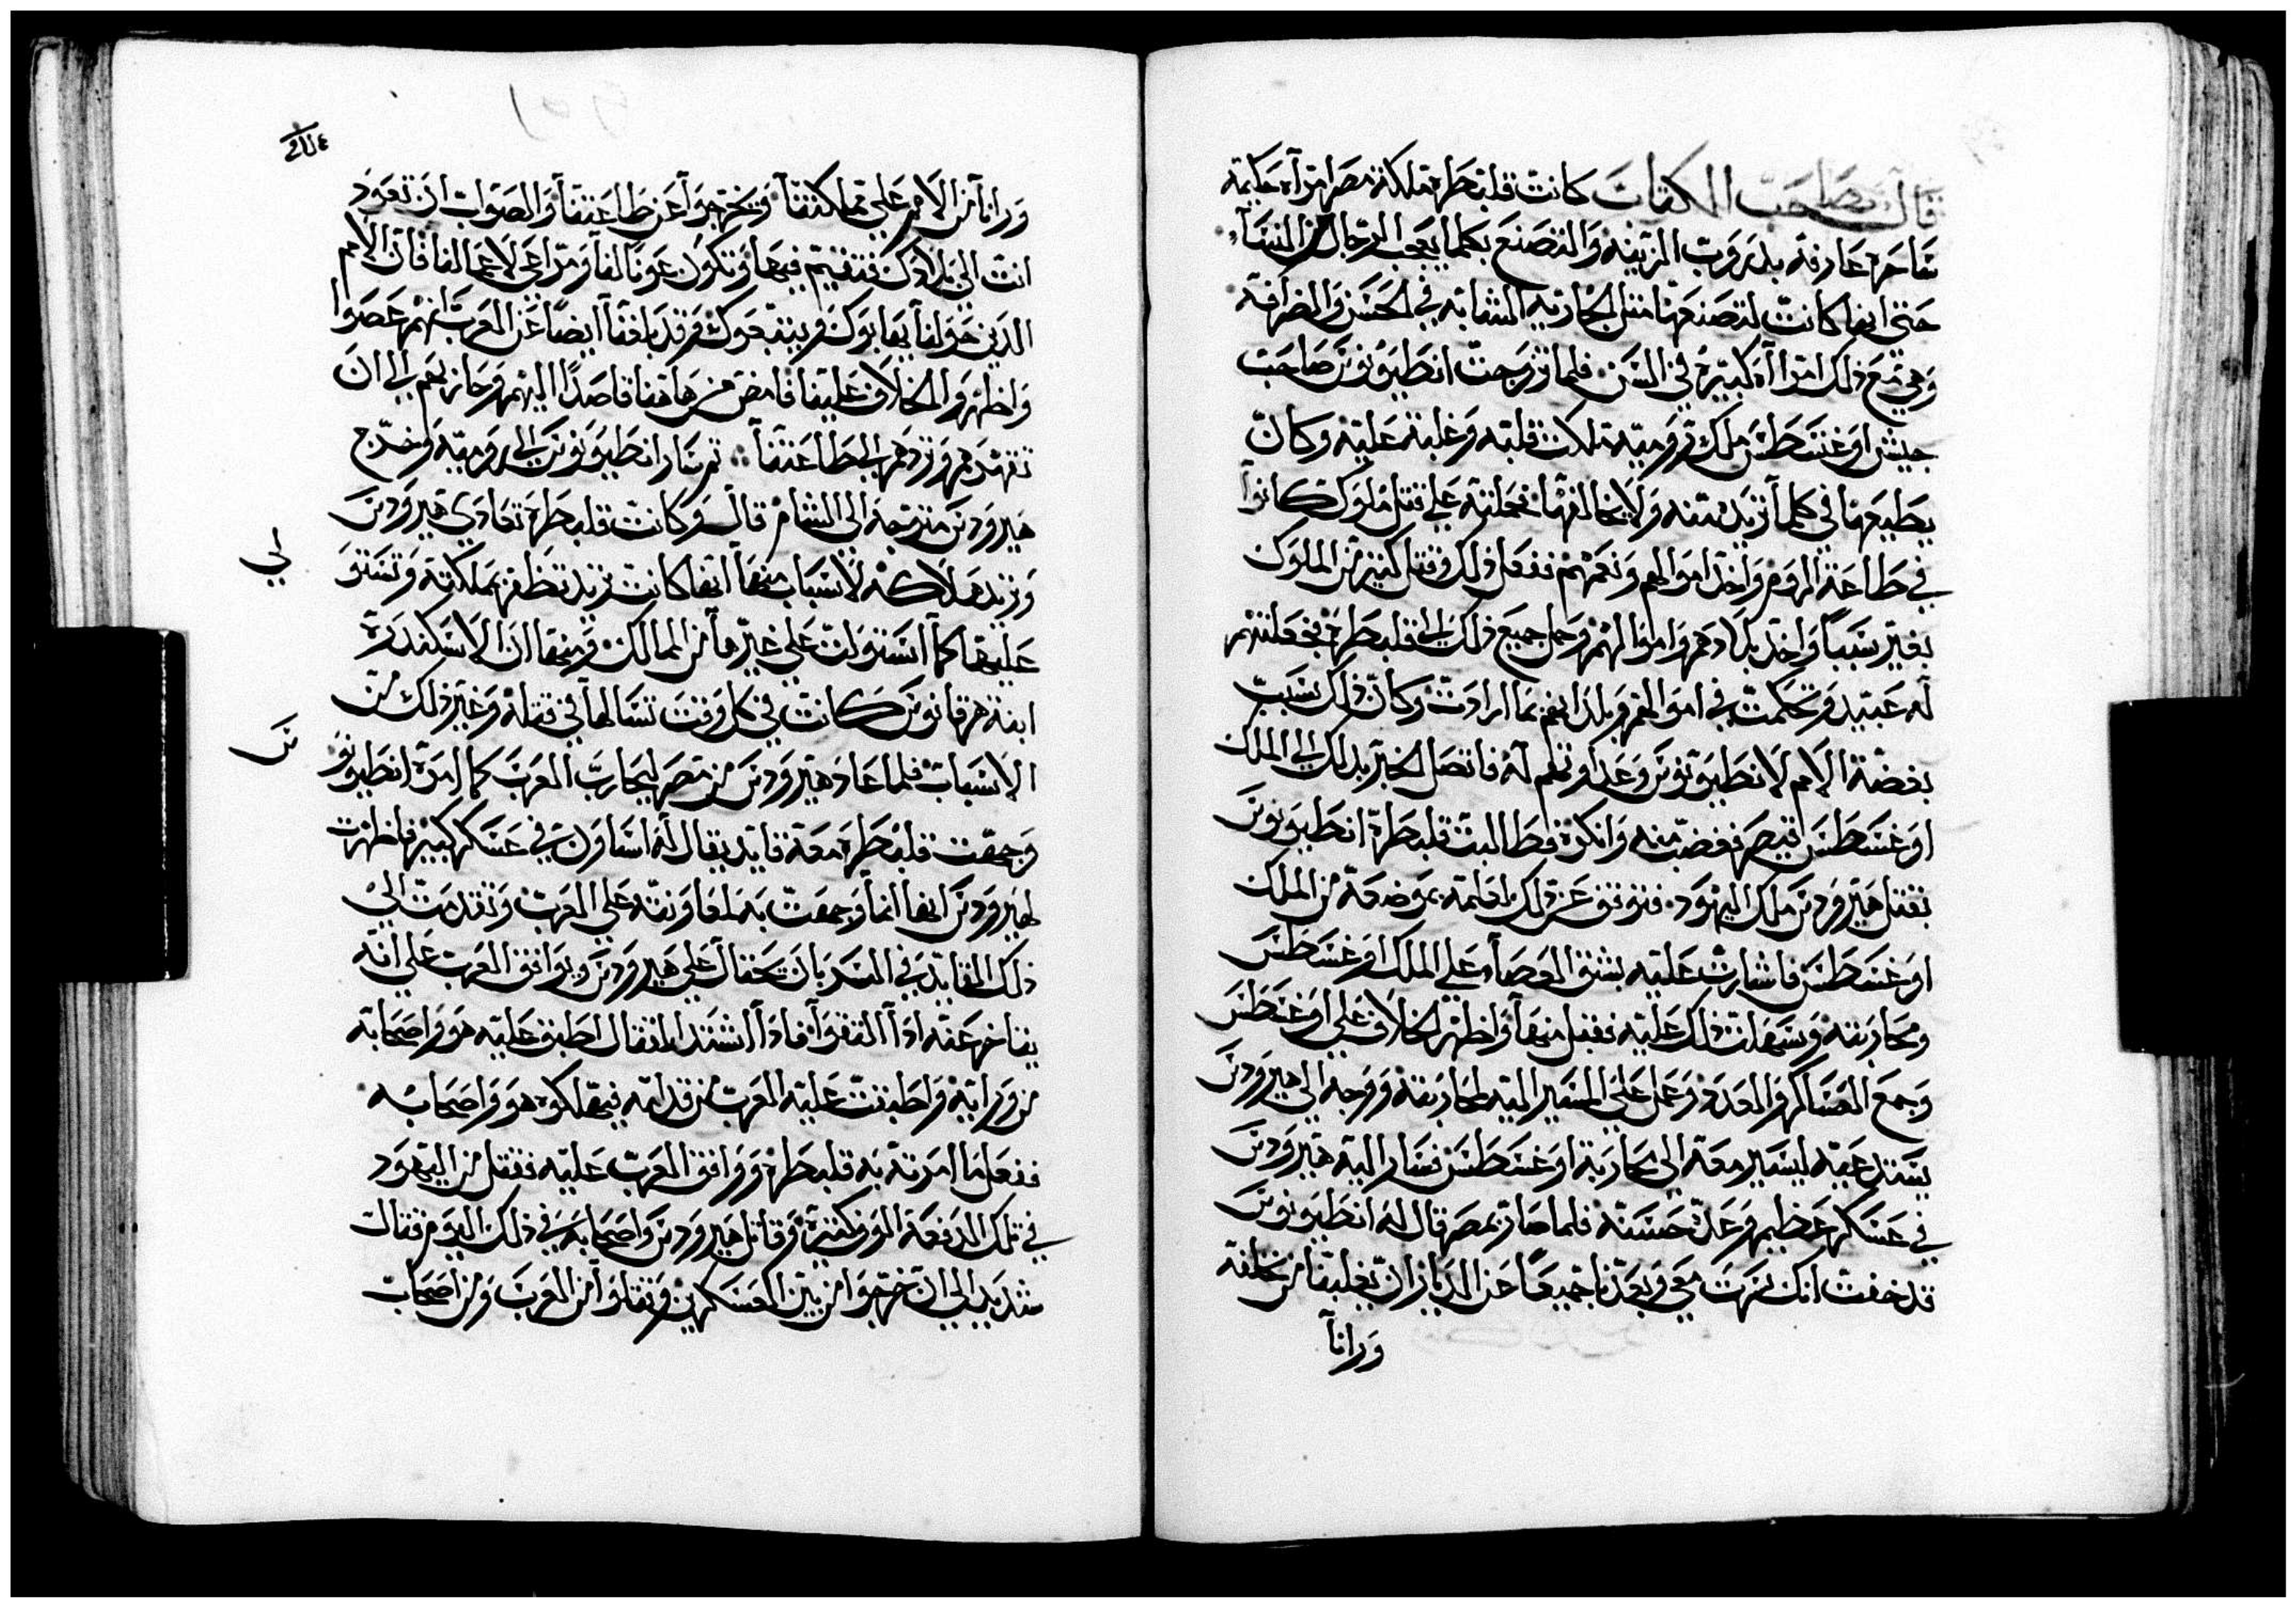 قال صاحب الكتاب كانت قلبطرة ملكة مصر امرآة حكيمة
ساحرة عارفة بدروب الزينة والتصنع بكلما يعجب الرجال من النسآء
حتى انها كانت لتصنعها مثل الجارية الشابة في الحسن والضرافة
وهي مع ذلك امرآة كبيرة في السن فلما تزوجت انطيونونس صاحب
جيش اوغسطس ملك رومية ملكت قلبه وغلبة عليه وكان
يطيعها في كلما تريد منه ولا يخالفها فحملته على قتل ملوك كانوا
في طاعة الروم واخذ اموالهم ونعمهم ففعل ذلك وقتل كثير من الملوك
بغير سبباً واخذ بلادهم واموالهم وحمل جميع ذلك الى قلبطرة فجعلتهم
له عبيد وتحكمت في اموالهم وبلدانهم بما ارادت وكان ذلك سبب
بغضة الامم لانطيونونس وعداوتهم له فاتصل الخبر بذلك الى الملك
اوغسطس قيصر فغضب منه وانكره فطالبت قلبطرة انطيونونس
بقتل هيرودس ملك اليهود فتوقف عن ذلك لعلمه بموضعة من الملك
اوغسطس فاشارت عليه بشق العصآء على الملك اوغسطس
ومحاربته وسهلت ذلك عليه فقبل منها واظهر الخلاف على اوغسطس
وجمع العساكر والعدد وعمل على المسير اليه لمحاربته ووجه الى هيرودس
يستدعيه ليسير معه الى محاربة اوغسطس فسار اليه هيرودس
في عسكر عظيم وعدة حسنة فلما صار بمصر قال له انطيونونس
قد خفت انك نهرت معي وبعدنا جميعاً عن الديار ان يغلبنا من نخلفه
ورانآ
ورانآ من الامم على مملكتنآ ويخرجوآ عن طاعتنآ والصواب ان تعود
انت الى بلادك فتقيم فيها وتكون عونا لنا ومراعى لاعمالنا فان الامم
الذين حولنا يهابوك ويتبعوك وقد بلغنآ ايضاً عن العرب انهم عصوا
واظهروا الخلاف علينا فامض من هاهنا قاصداً اليهم وحاربهم الى ان
تقهرهم وتردهم الى طاعتنآ ثم سار انطيونونس الى رومية وخرج
هيرودس متوجة الى الشام قال وكانت قلبطرة تعادي هيرودس
وتريد هلاكه لاسباب منها انها كانت تريد تظفر بمملكته وتستو لي
عليها كما استولت على غيرها من الممالك ومنها ان الاسكندرة
ابنة هرقانوس كانت في كل وقت تسالها في قتله وغير ذلك من
الاسباب فلما عاد هيرودس من مصر ليحارب العرب كما امرة انطيونو نس
وجهت قلبطرة معه قايد يقال له اساون في عسكر كبير فاظهرت
لهيرودس انها انما وجهت به لمعاونته على العرب وتقدمت الى
ذلك القايد في السر بان يحتال على هيرودس ويوافق العرب على انه
يتاخر عنه اذا التقوا فاذا اشتد القتال اطبق عليه هو واصحابه
من ورايه واطبقت عليه العرب من قدامه فيهلكوه هو واصحابه
ففعل ما امرته به قلبطرة ووافق العرب عليه فقتل من اليهود
في تلك الدفعة الوف كثيرة وقاتل هيرودس واصحابه في ذلك اليوم قتال
شديد الى ان خرجوا من بين العسكرين وتقاوآ من العرب ومن اصحاب